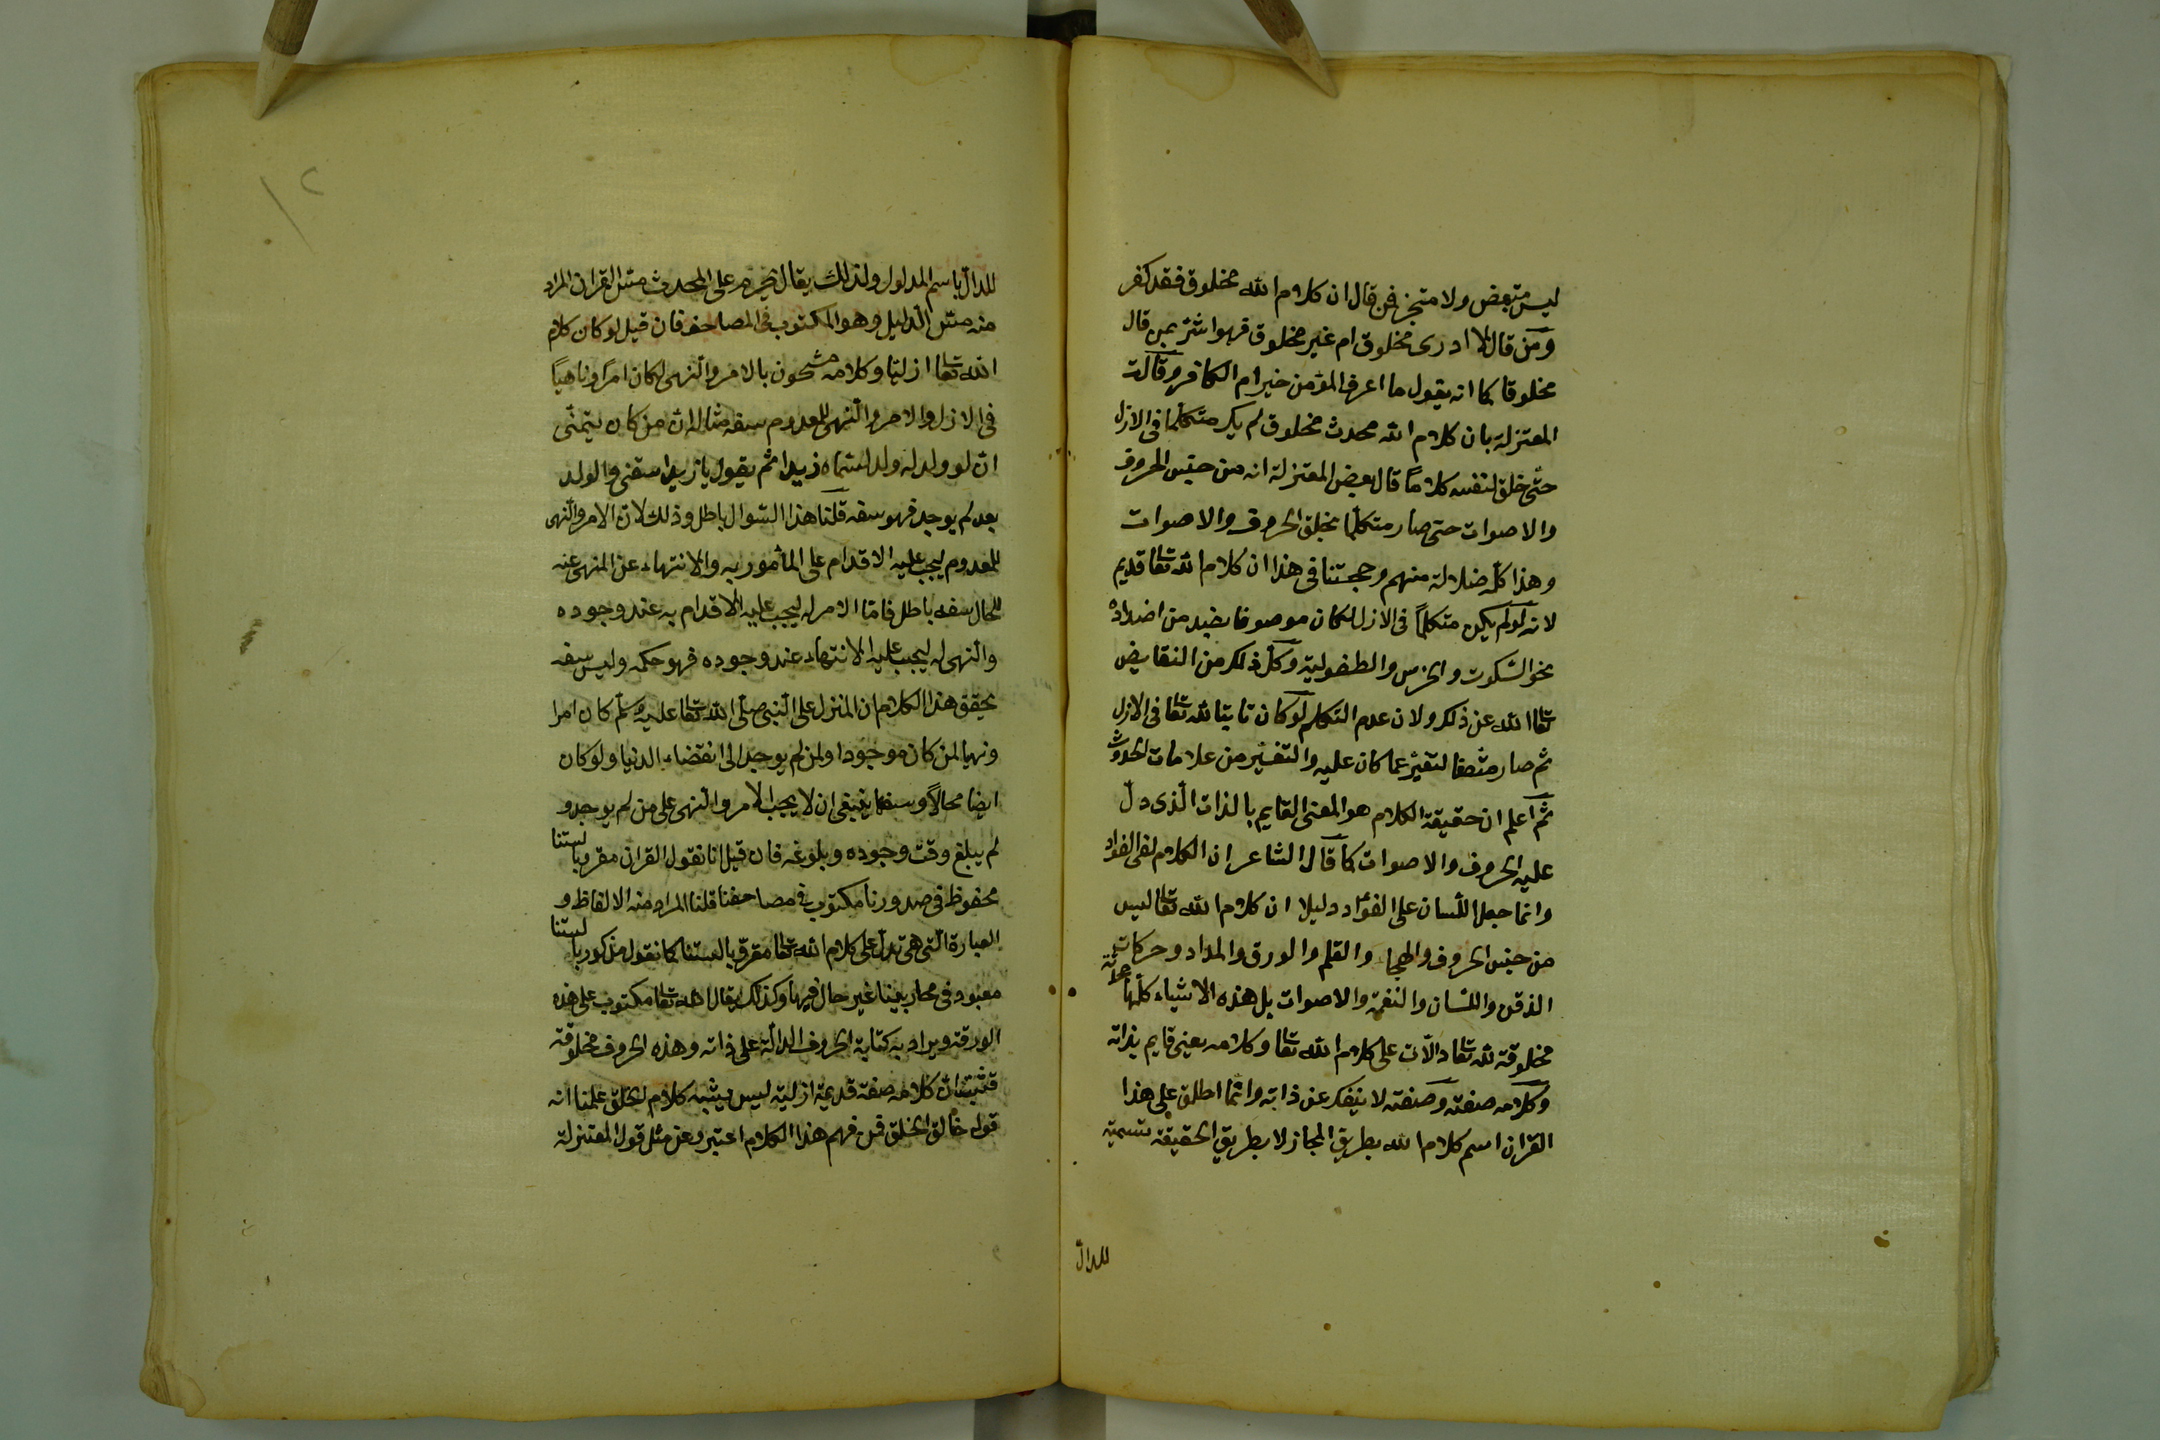 ليس متبعض ولا متجز فمن قال ان كلام الله مخلوق فقد كفر
ومن قال لا ادرى مخلوق ام غير مخلوق فهو اشر ممن قال
مخلوقا كما انه يقول ما اعرف المؤمن خير ام الكافر وقالت
المعتزلة بان كلام الله محدث مخلوق لم يكن متكلما فى الازل
حتى خلق لنفسه كلاما قال بعض المعتزلة انه من جنس الحروف
والاصوات حتى صار متكلما بخلق الحروف والاصوات
وهذا كله ضلالة منهم وحجتنا فى هذا ان كلام الله تعا قديم
لانه لو لم يكن متكلما فى الازل لكان موصوفا بضد من اضداده
نحو السكوت والخرس والطفولية وكل ذلك من النقايض
تعا الله عن ذلك ولان عدم التكلم لو كان ثابتا لله تعا فى الازل
ثم صار متصفا لتغير عما كان عليه والتغير من علامات الحدوث
ثم اعلم ان حقيقة الكلام هو المعنى القايم بالذات الذى دل
عليه الحروف والاصوات كما قال الشاعر ان الكلام لفى الفواد
وانما جعل اللسان على الفؤاد دليلا ان كلام الله تعا ليس
من جنس الحروف والهجاء والقلم والورق والمداد وحركات
الذقن واللسان والنغمة والاصوات بل هذه الاشياء كلها محدثة
مخلوقة لله تعا دالات على كلام الله تعا وكلامه معنى قايم بذاته
وكلامه صفته وصفته لا ينفك عن ذاته وانما اطلق على هذا
القران اسم كلام الله بطريق المجاز لا بطريق الحقيقة تسمية
للدال
١٢
للدال باسم المدلول ولذلك يقال يحرم على المحدث مس القران المراد
منه مس الدليل وهو المكتوب فى المصاحف فان قيل لو كان كلام
الله تعا ازليا وكلامه مشحون بالامر والنهى لكان امرا وناهيا
فى الازل والامر والنهى للمعدوم سفه مثاله ان من كان يتمنى
ان لو ولد له ولد لسماه زيدا ثم يقول يا زيد اسقنى والولد
بعد لم يوجد فهو سفه قلنا هذا السوال باطل وذلك لان الامر والنهى
للمعدوم ليجب عليه الاقدام على المأمور به والانتهاء عن المنهى عنه
للحال سفه باطل فاما الامر له ليجب عليه الاقدام به عند وجوده
والنهى له ليجب عليه الانتهاء عند وجوده فهو حكمة وليس سفه
يحقق هذا الكلام ان المنزل على النبى صلى الله تعا عليه وسلم كان امرا
ونهيا لمن كان موجودا ولمن لم يوجد الى انقضاء الدنيا ولو كان
ايضا محالا وسفها ينبغى ان لا يجب الامر والنهى على من لم يوجد و
لم يبلغ وقت وجوده وبلوغه فان قيل انا نقول القران مقرو بالستنا
محفوظ فى صدورنا مكتوب فى مصاحفنا قلنا المراد منه الالفاظ و
العبارة التى هى تدل على كلام الله تعا مقرو بالسنتنا كما نقول مذكور بالستنا
معبود فى محاريبنا غير حال فيها وكذلك يقال الله تعا مكتوب على هذه
الورقة ويراد به كتابة الحروف الدالة على ذاته وهذه الحروف مخلوقة
فثبت ان كلامه صفة قديمة ازلية ليس يشبه كلام الخلق علمنا انه
قول خالق الخلق فمن فهم هذا الكلام اعتبر وعن مثل قول المعتزلة